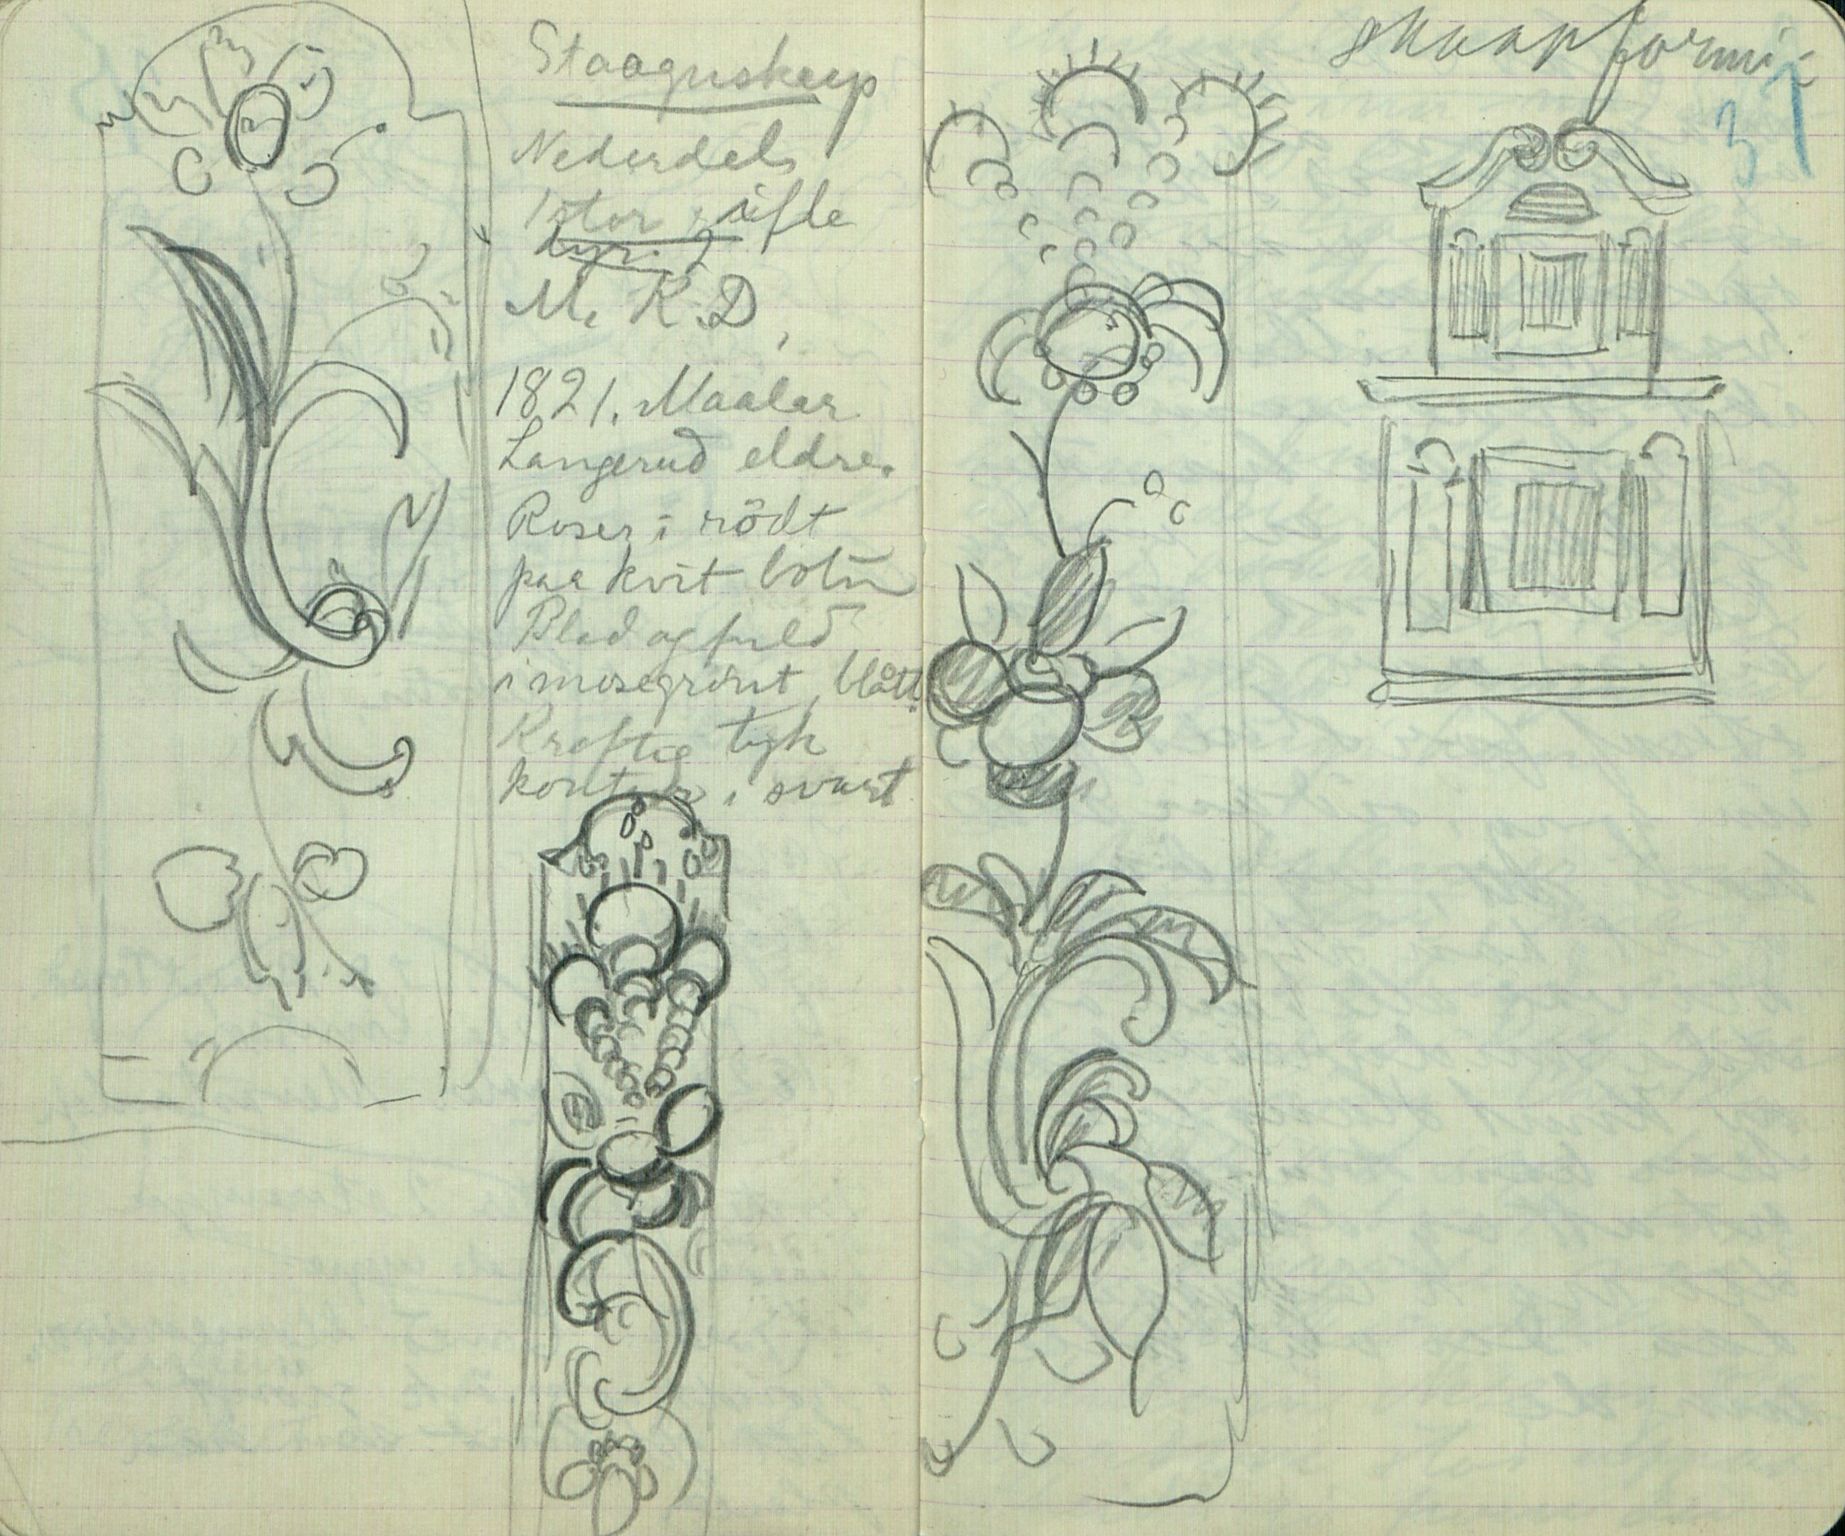 Staaguskap
Nederdels
stor
M. K. D.
1821. Maalar
Langerud eldre.
Roser i rödt
paa kvit botn
Blad og
i mosegrönt, blått
Kraftig tyk
kontur i svart
skaapform
31